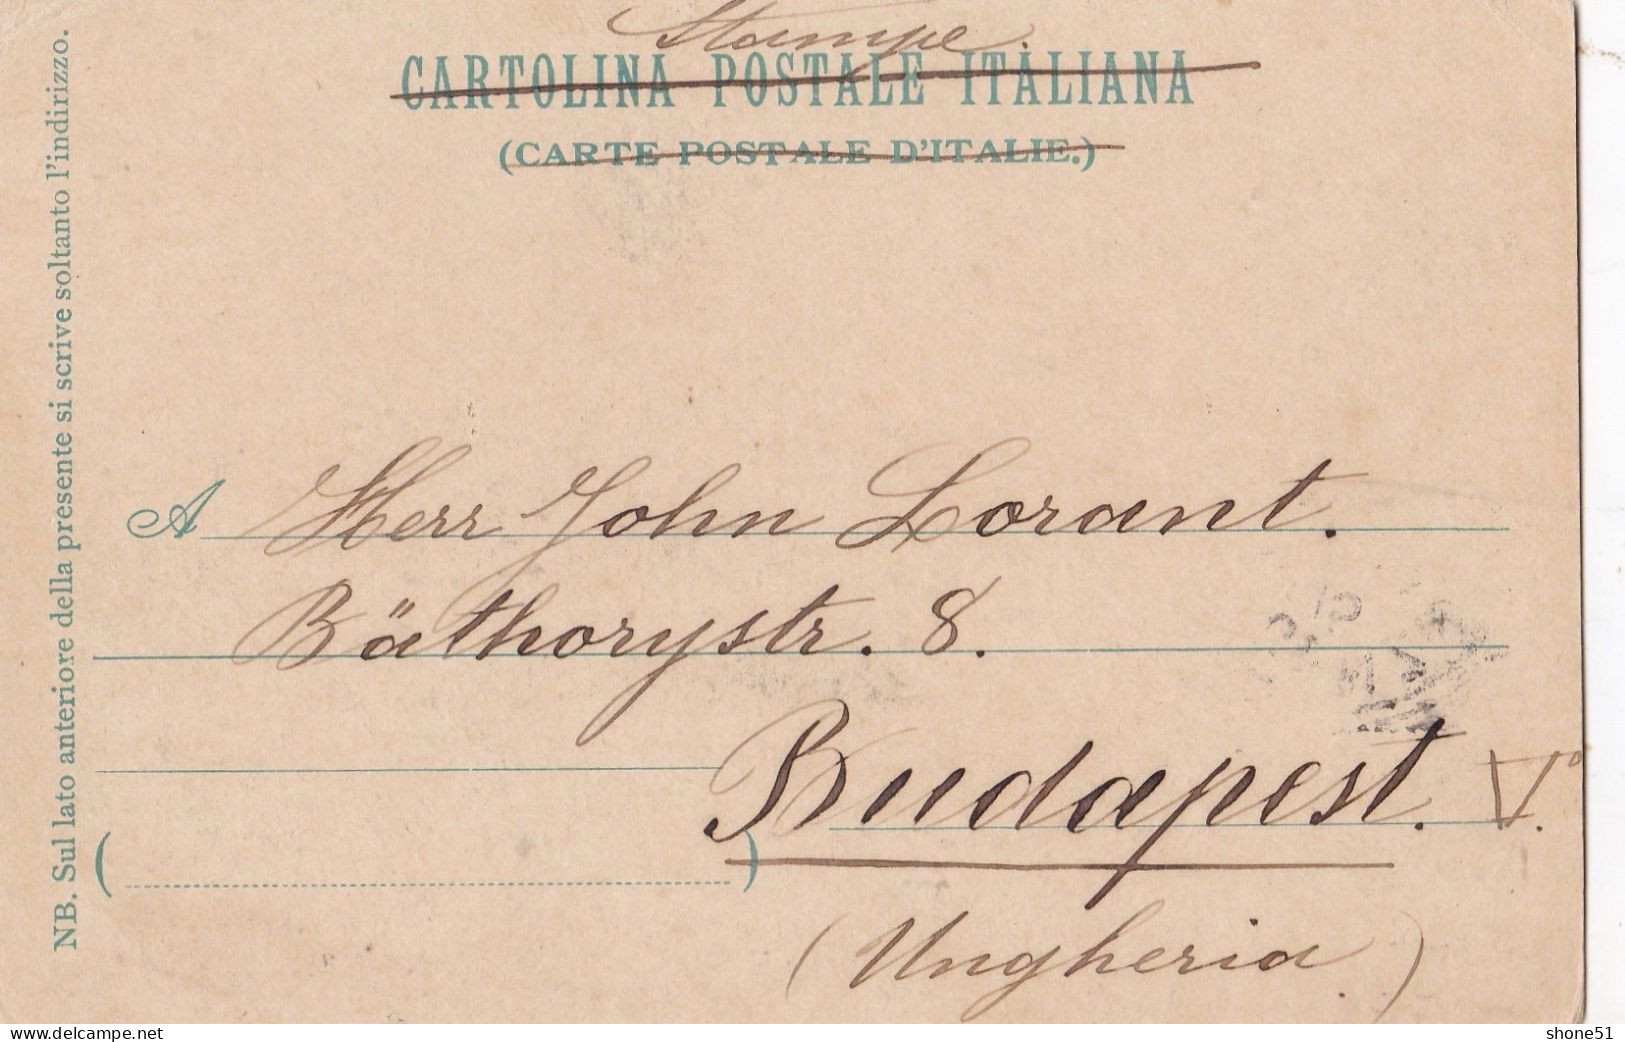 Stampe.
CARTOLINA POSTALE ITALIANA
(CARTE POSTALE D'ITALIE.)
NB. Sul lato anteriore della presente si scrive soltanto l'indirizzo.
A Herr John Lorant.
Bäthorystr. 8.
Budapest. V.
(Ungheria.)
www.delcampe.net
shone51